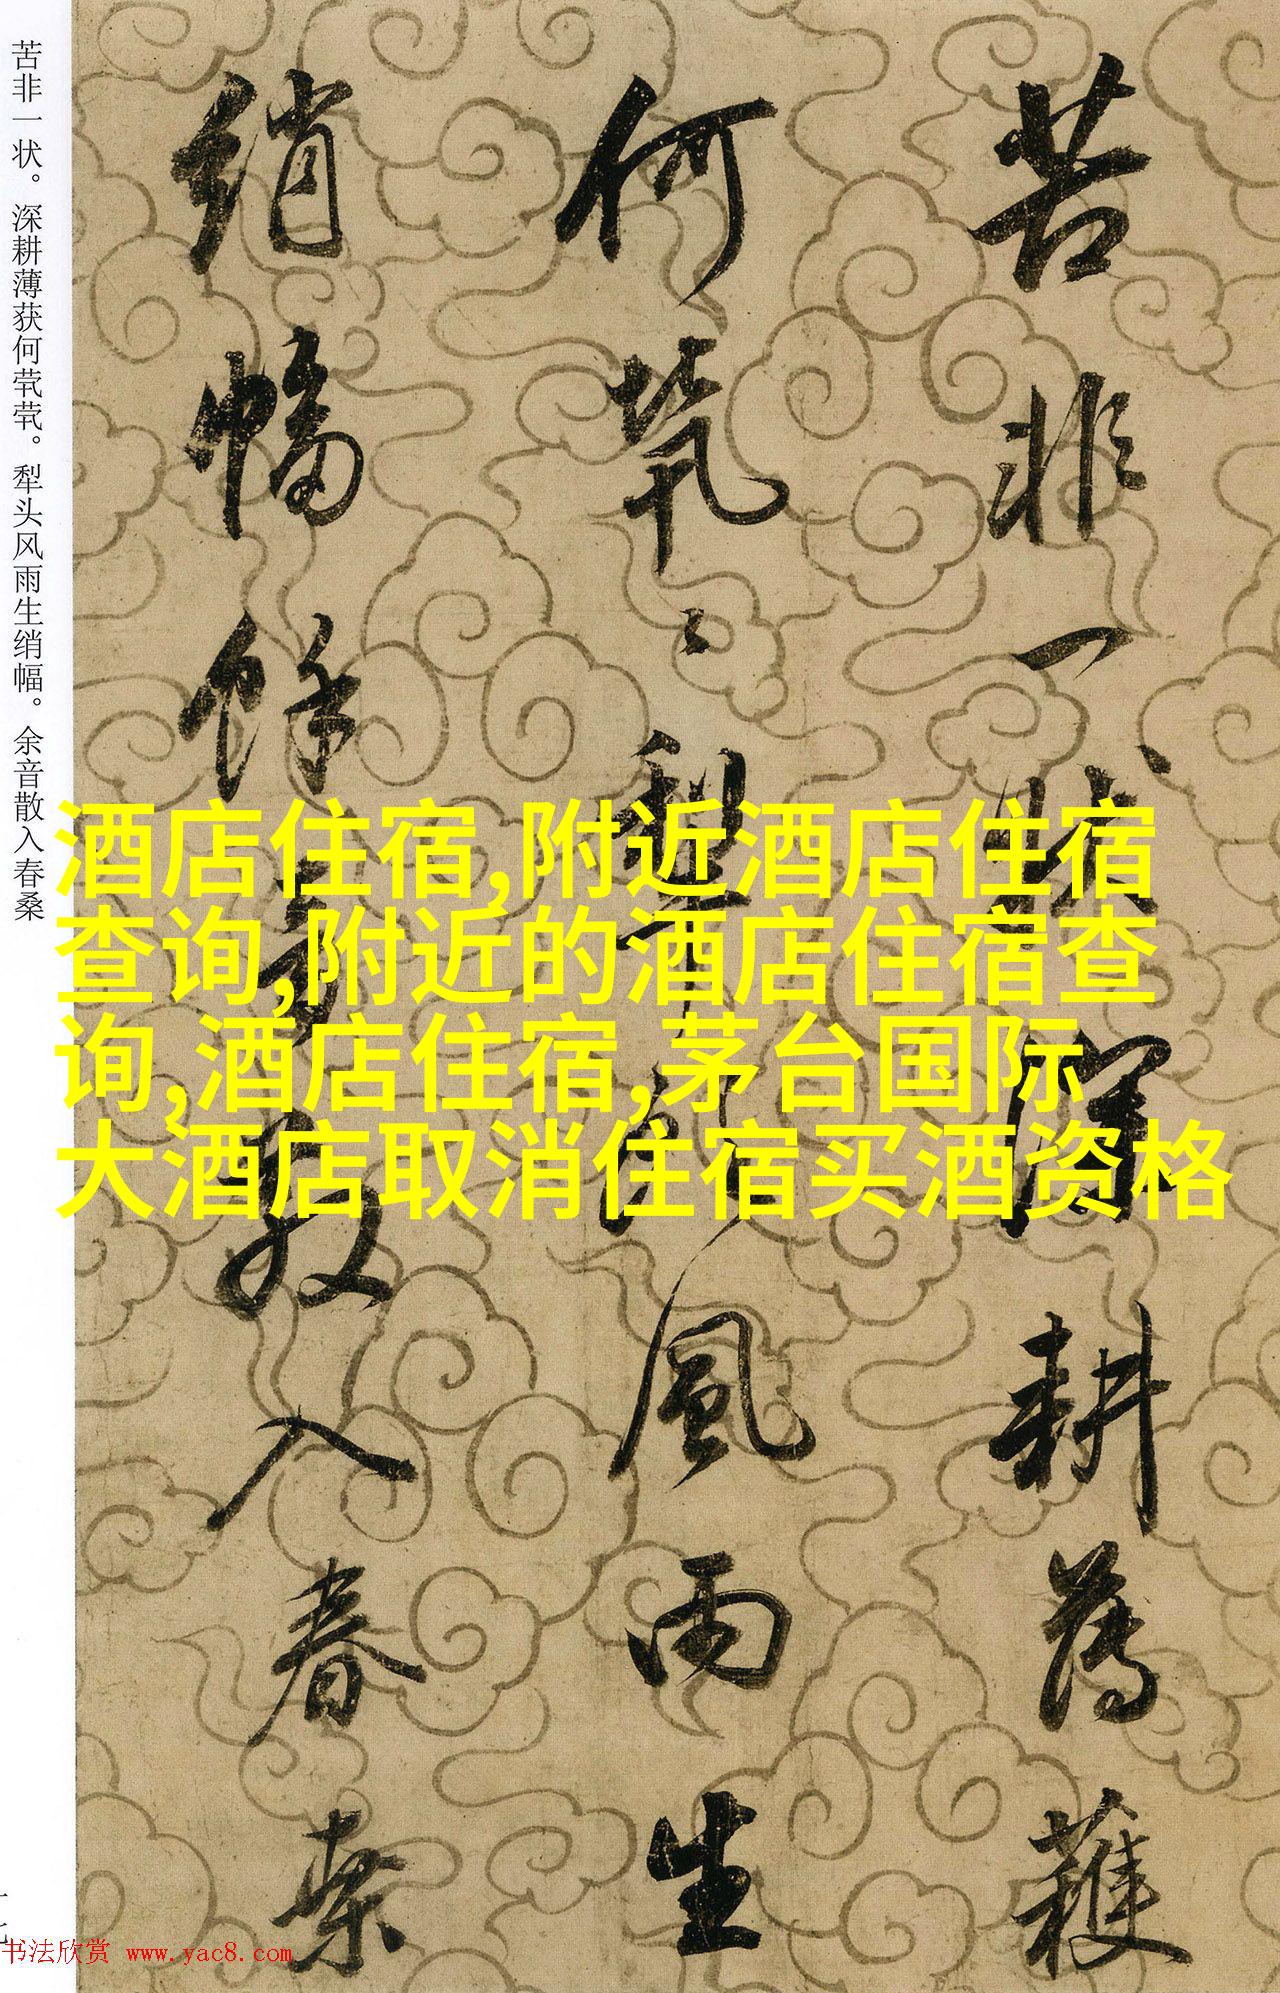 苦非一状。深耕薄获何茕茕。犁头风雨生绡幅。余音散入春桑
苦非一狀深耕薄穫
何煢〻犁頭風雨生
綃幅餘音散入春桑
酒店住宿,附近酒店住宿
查询,附近的酒店住宿查
询,酒店住宿,茅台国际
大酒店取消住宿买酒资格
书法欣赏 www.yac8.com